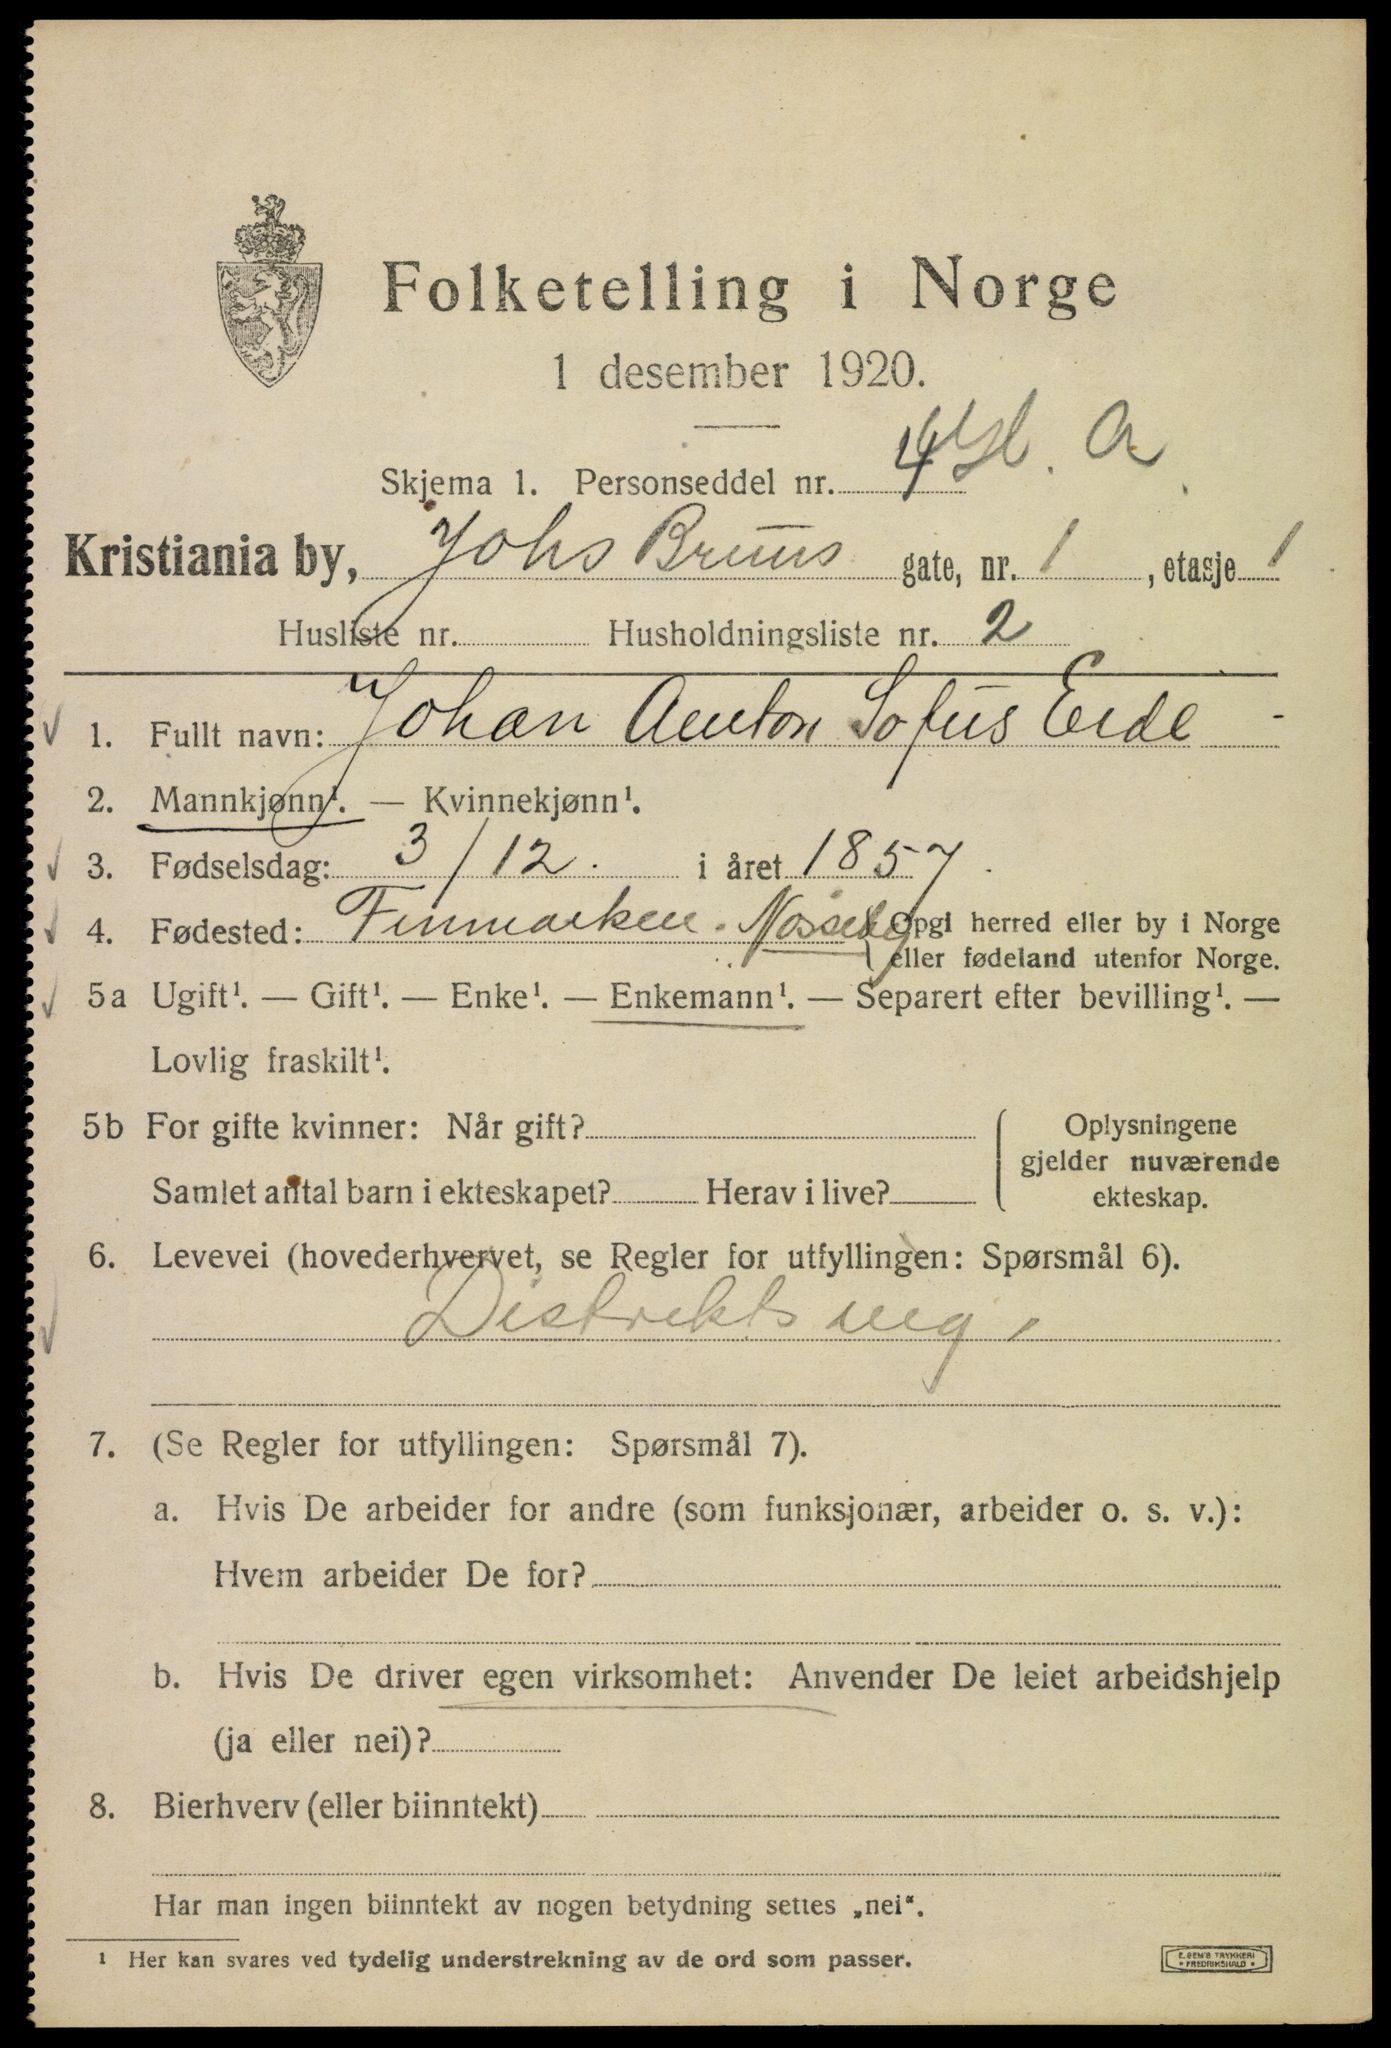 Folketelling i Norge
1 desember 1920.
Skjema 1. Personseddel nr. 4
Kristiania by, Johs Bruns gate, nr. 1, etasje 1
Husliste nr. Husholdningsliste nr. 2
1. Fullt navn: Johan Anton Sofus Eide
2. Mannkjønn¹. — Kvinnekjønn¹.
3. Fødselsdag: 3/12. i året 1857.
4. Fødested: Finmarken. Nesseby { Opgi herred eller by i Norge
eller fødeland utenfor Norge.
5a Ugift¹. — Gift¹. — Enke¹. — Enkemann¹. — Separert efter bevilling¹. —
Lovlig fraskilt¹.
5b For gifte kvinner: Når gift? { Oplysningene
gjelder nuværende
Samlet antal barn i ekteskapet? Herav i live? ekteskap.
6. Levevei (hovederhvervet, se Regler for utfyllingen: Spørsmål 6).
Distrikts
7. (Se Regler for utfyllingen: Spørsmål 7).
a. Hvis De arbeider for andre (som funksjonær, arbeider o. s. v.):
Hvem arbeider De for?
b. Hvis De driver egen virksomhet: Anvender De leiet arbeidshjelp
(ja eller nei)?
8. Bierhverv (eller biinntekt)
Har man ingen biinntekt av nogen betydning settes „nei“.
¹ Her kan svares ved tydelig understrekning av de ord som passer.
E. SEM'S TRYKKERI
• FREDRIKSHALD •